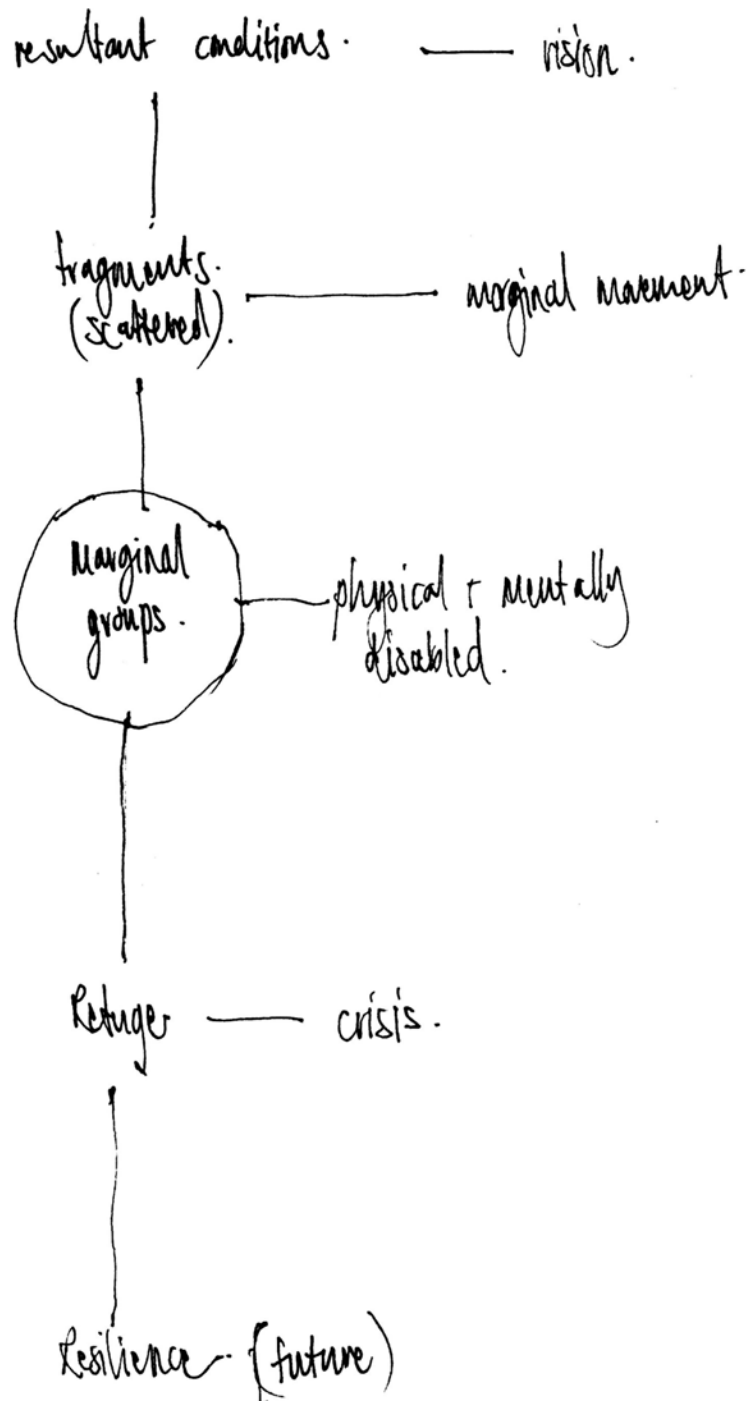 resultant conditions. — vision.
fragments.
(scattered). — marginal movement.
Marginal
groups.
physical + mentally
disabled.
Refuge — crisis.
Resilience (future)